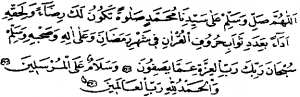 اَللّٰهُمَّ صَلِّ وَسَلِّمْ عَلٰى سَيِّدِنَا مُحَمَّدٍ صَلٰوةً تَكُوْنُ لَكَ رِضَآءً وَلِحَقِّهٖ
اَدَآءً بِعَدَدِ ثَوَابِ حُرُوْفِ الْقُرْاٰنِ فِى شَهْرِ رَمَضَانَ وَعَلٰى اٰلِهٖ وَصَحْبِهٖ وَسَلِّمْ
سُبْحَانَ رَبِّكَ رَبِّ الْعِزَّةِ عَمَّا يَصِفُوْنَ وَسَلَامٌ عَلَى الْمُرْسَلِيْنَ
وَالْحَمْدُ لِلّٰهِ رَبِّ الْعَالَمِيْنَ